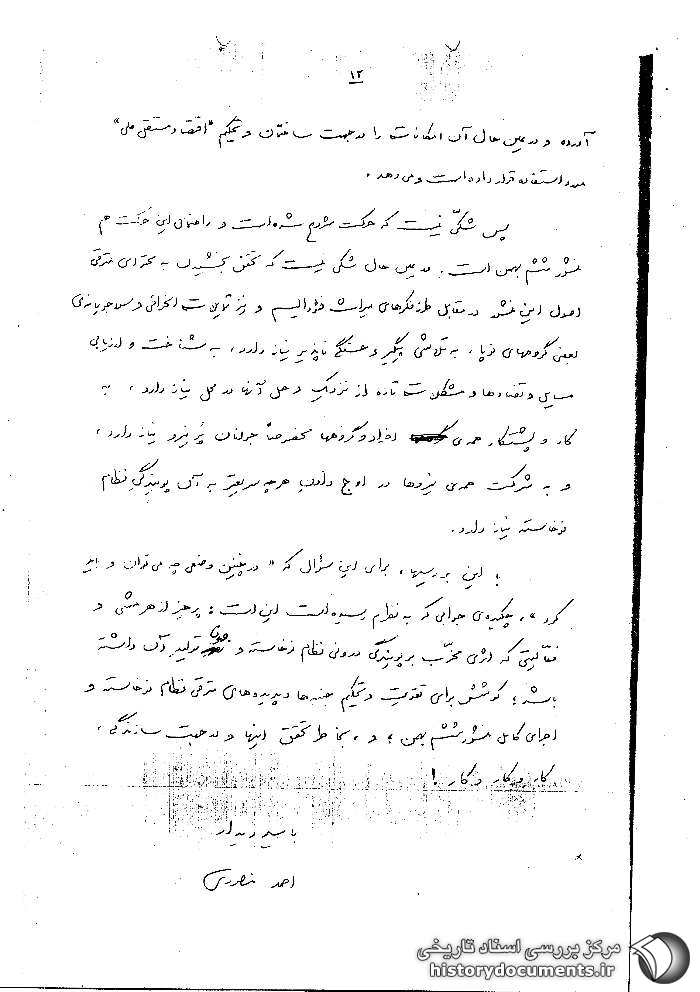 ۱۲
آورده و در عین حال آن امکانات را در جهت ساختن و تحکیم "اقتصاد مستقل ملی"
مورد استفاده قرار داده است و می‌دهد.
پس شکّی نیست که حرکت شروع شده است و راهنمای این حرکت هم
منشور ششم بهمن است. در عین حال شکی نیست که تحقق بخشیدن به محتوای مترقی
اصول این منشور در مقابل طرز تفکرهای میراث فئودالیسم و نیز تمایلات انحرافی و سودجویانه‌ی
بعضی گروههای نوپا، به تلاشی پیگیر و خستگی ناپذیر نیاز دارد، به شناخت و ارزیابی
مسایل و تضادها و مشکلات تازه از نزدیک و حل آنها در محل نیاز دارد، به
کار و پشتکار همه‌ی افراد و گروهها مخصوصاً جوانان پُر نیرو نیاز دارد،
و به شرکت همه‌ی نیروها در اوج دادن هرچه سریعتر به آن پویندگی نظام
نوخاسته نیاز دارد.
با این بررسیها، برای این سؤال که "در چنین وضعی چه می‌توان و باید
کرد"، چکیده‌ی جوابی که به نظرم رسیده است این است: پرهیز از هر مشی و
فعّالیتی که اثری مخرّب بر پویندگی درونی نظام نوخاسته و روند تولید آن داشته
باشد؛ کوشش برای تقویت و تحکیم جنبه‌ها و پدیده‌های مترقی نظام نوخاسته و
اجرای کامل منشور ششم بهمن؛ و، بخاطر تحقق اینها و در جهت سازندگی،
کار و کار و کار!
با امید دیدار
احمد منصوری
مرکز بررسی اسناد تاریخی
historydocuments.ir